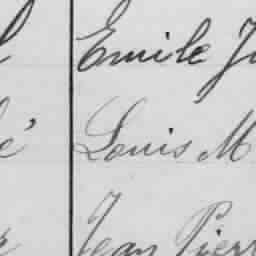 Emile Ju
é Louis M
Jean Pierr